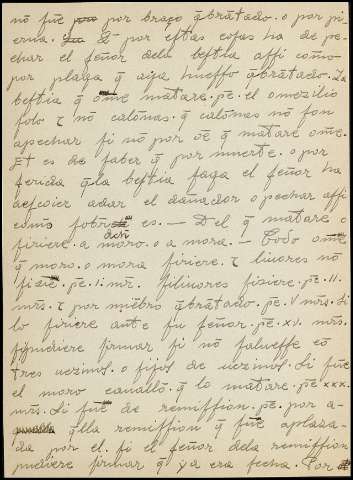 no fue por braço q̄bratado. o por pi-
erna. Et por eſtas coſas ha de pe-
char el ſeñor dela beſtia aſſi como
por plaga q̄ aya hueſſo q̄bratado. La
beſtia q̄ ome matare. pe. el omezilio
ſolo τ no calon̄as. q̄ calon̄as no ſon
apechar ſi no por oe q̄ matare ome.
Et es de ſaber q̄ por muerte. o por
ferida q̄la beſtia faga el ſeñor ha
deſcoier adar el dañador o pechar aſſi
como ſobre es. — Del q̄ matare o
dicho
firiere. a moro. o a mora. — Todo ome
q̄ moro. o mora firiere. τ liuores no
fizie. pe. I. mr̄. ſiliuores fiziere. pe. II.
mr̄s. τ por miēbro q̄bratado. pe. V mr̄s. Si
lo firiere ante ſu ſeñor. pe. XV. mr̄s.
ſi pudiere firmar ſi no ſalueſſe co
tres uezinos. o fijos de uezinos. Si fue
el moro cauallo. q̄ lo matare. pe XXX.
mr̄s. Si fue de remiſſion. pe. por a-
q̄lla remiſſion q̄ fue aplaza-
da por el. ſi el ſeñor dela remiſſion
pudiere firmar q̄ ya era fecha. Por